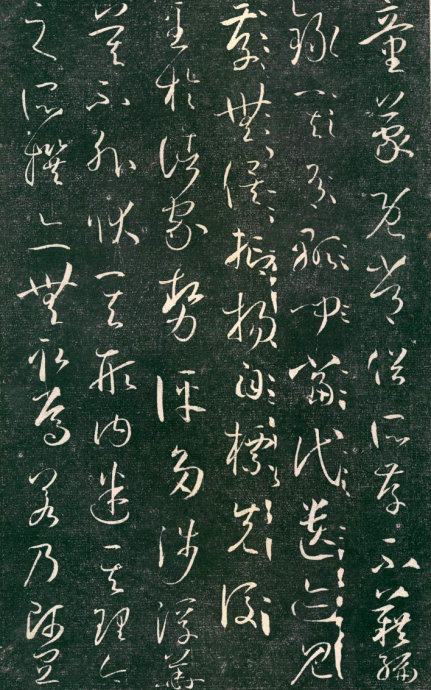 童蒙既常俗所存不藉編
錄其有顯聞當代遺跡見
存無俟抑揚自標先後
至於諸家勢評多涉浮華
莫不外狀其形內迷其理今
之所撰亦無取焉若乃師宜